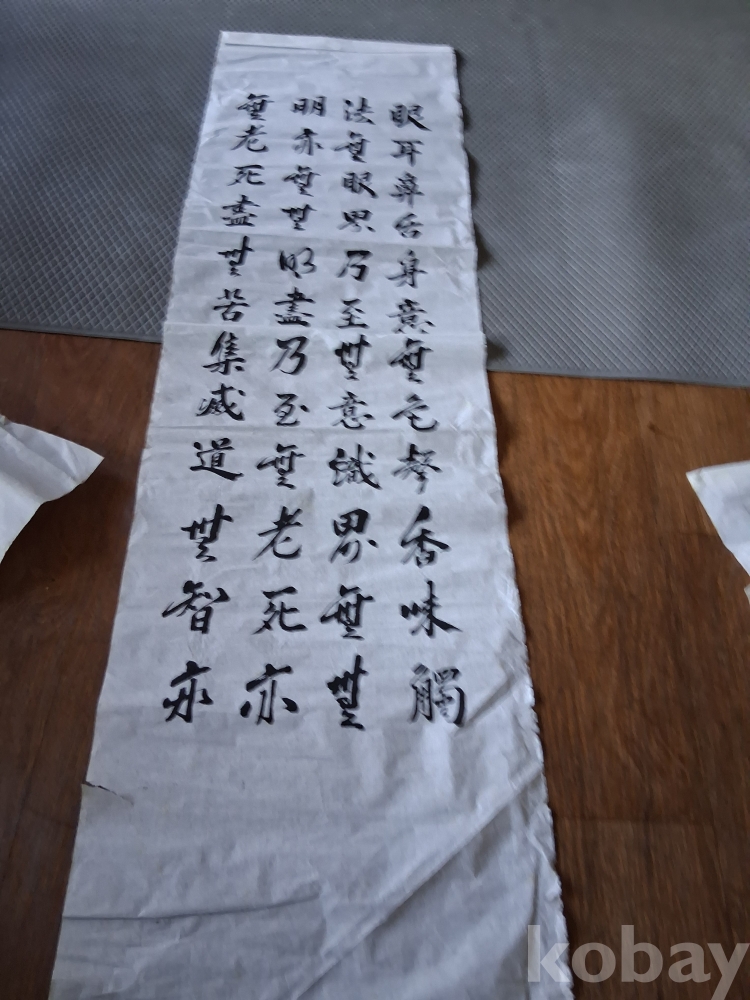 眼耳鼻舌身意無色聲香味觸
法無眼界乃至無意識界無無
明亦無無明盡乃至無老死亦
無老死盡無苦集滅道無智亦
kobay